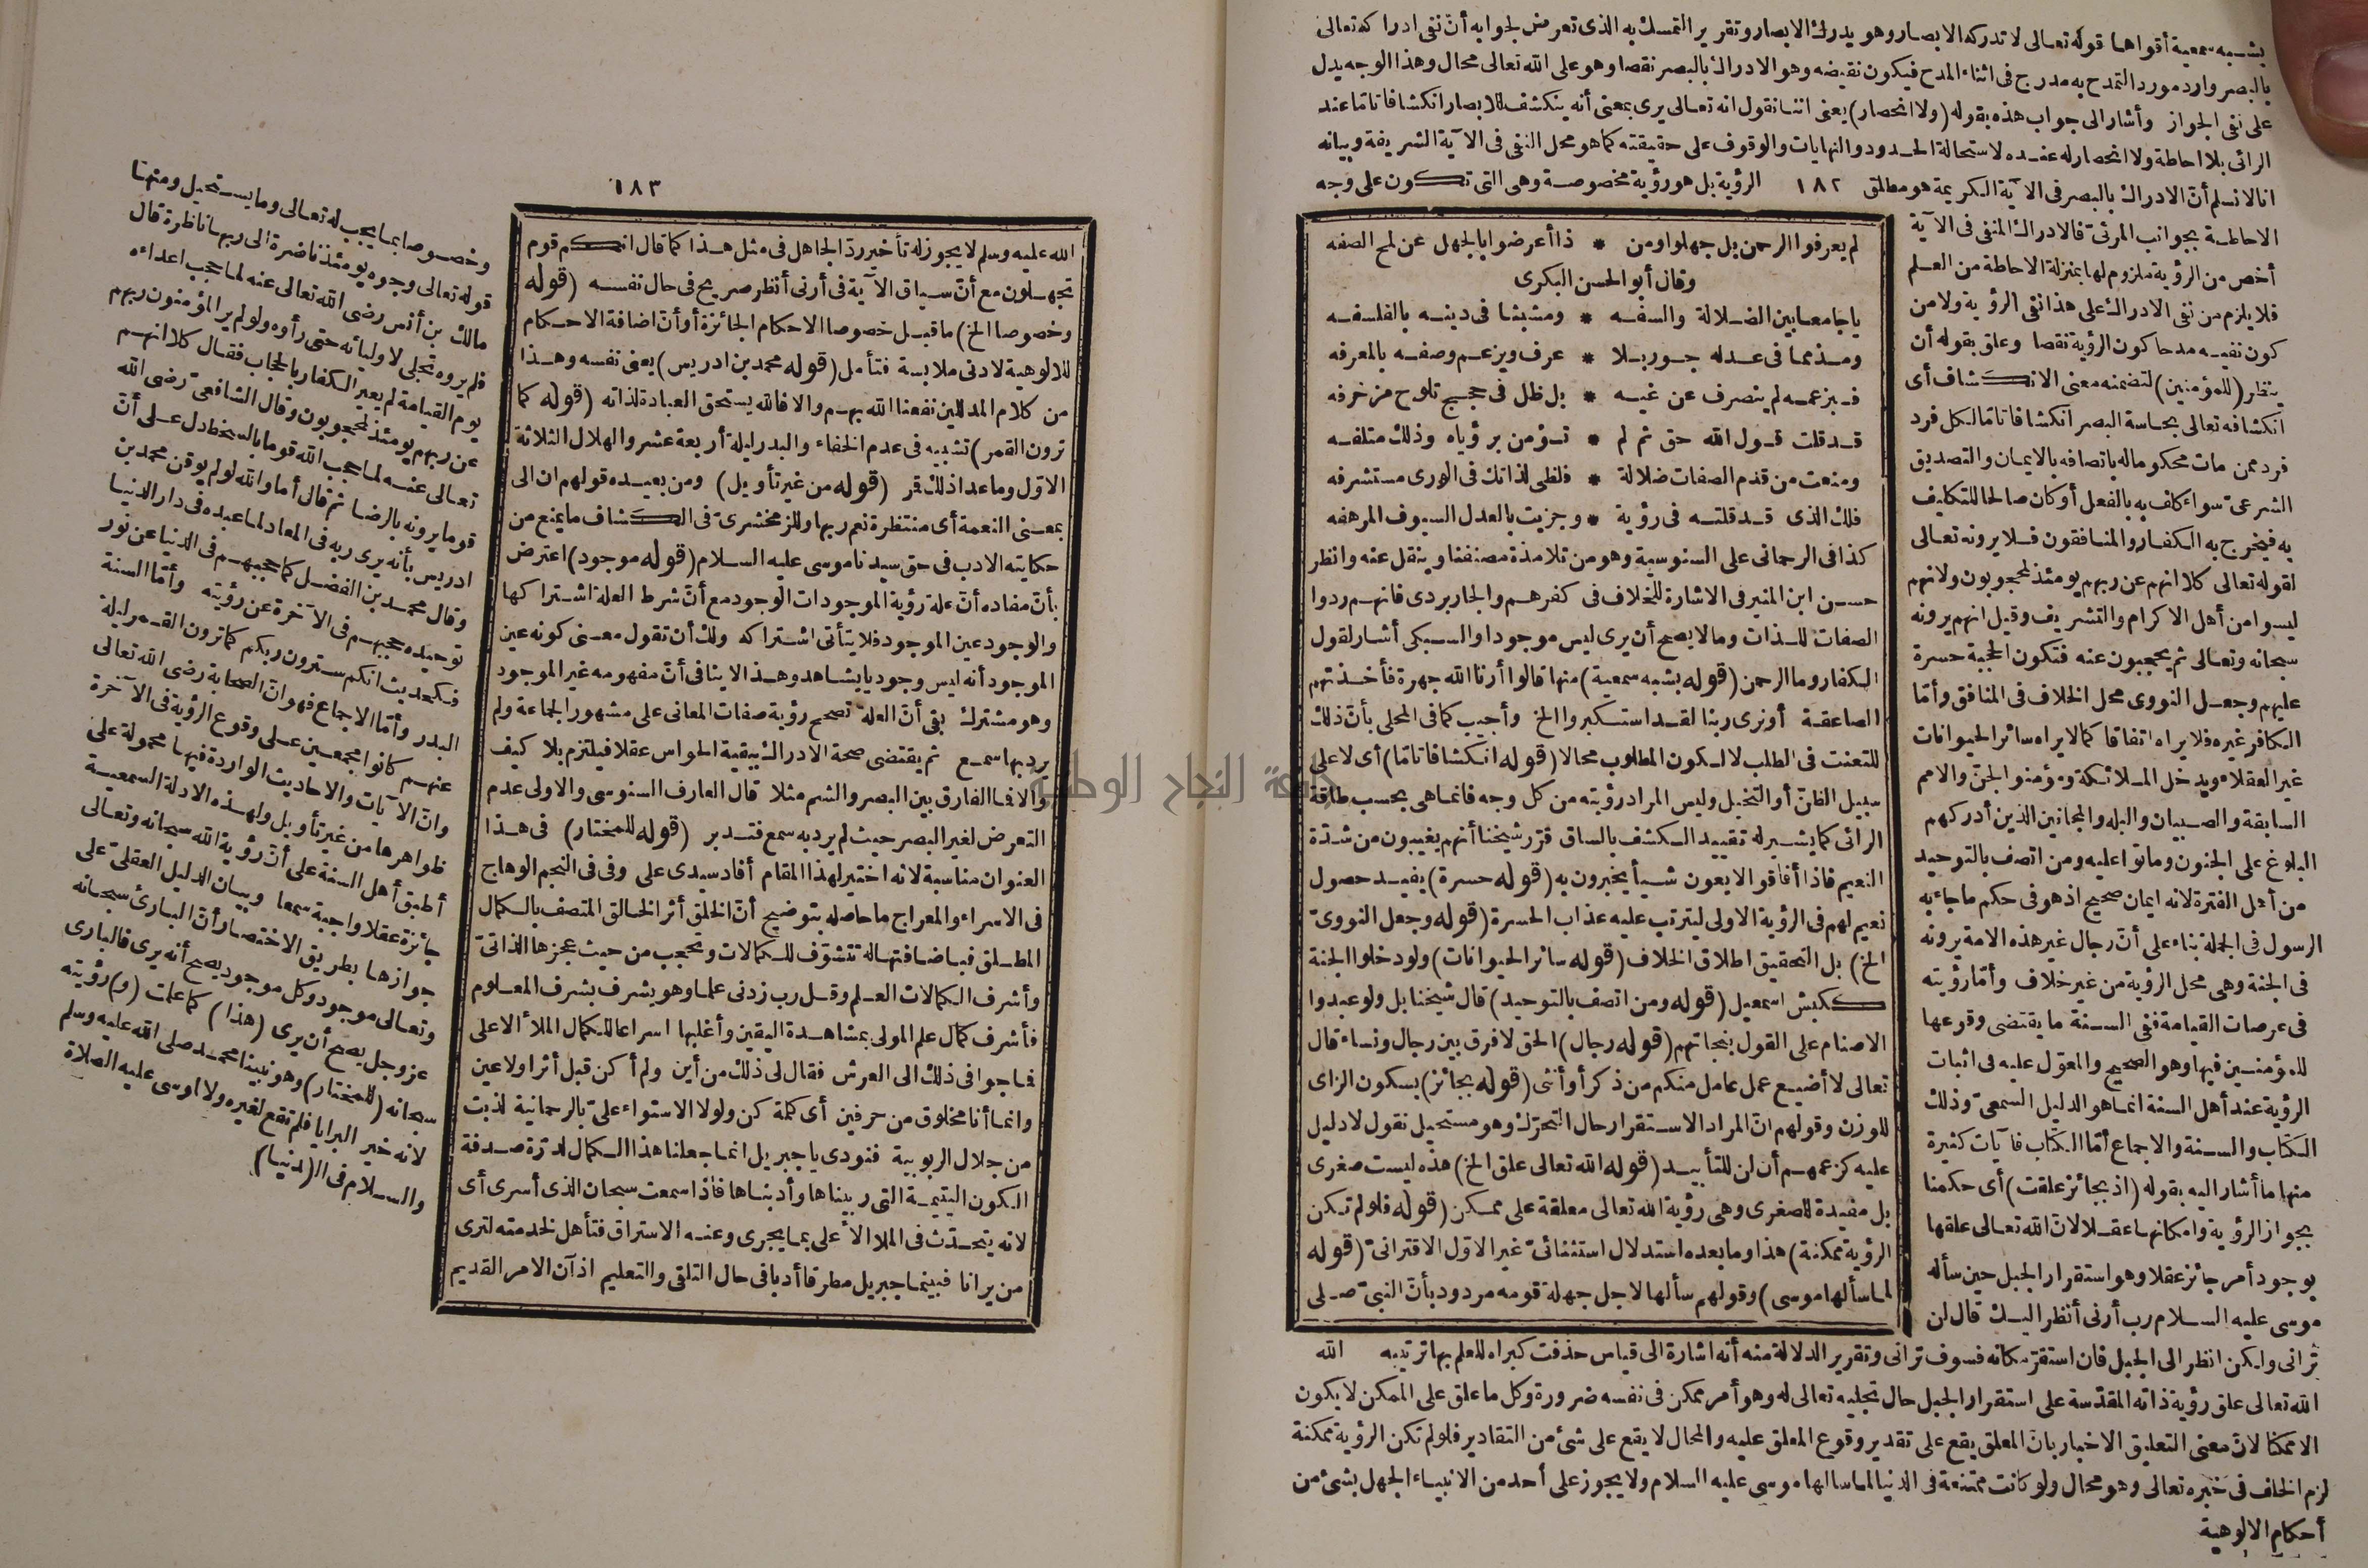 بشبه سمعية أقواها قوله تعالى لا تدركه الابصار وهو يدرك الابصار وتقرير التمسك به الذى تعرض لجوابه أنّ نفى ادراكه تعالى
بالبصر وارد مورد التمدح به مدرج فى اثناء المدح فيكون نقيضه وهو الادراك بالبصر نقصا وهو على الله تعالى محال وهذا الوجه يدل
على نفى الجواز وأشار الى جواب هذه بقوله (ولا انحصار) يعنى اننا نقول انه تعالى يرى بمعنى أنه ينكشف للابصار انكشافا تاما عند
الرائى بلا احاطة ولا انحصار له عنده لاستحالة الحدود والنهايات والوقوف على حقيقته كما هو محل النفى فى الآية الشريفة وبيانه
انا لا نسلم أنّ الادراك بالبصر فى الآية الكريمة هو مطلق ١٨٢ الرؤية بل هو رؤية مخصوصة وهى التى تكون على وجه
الاحاطة بجوانب المرئىّ فالادراك المنفى فى الآية
أخص من الرؤية ملزوم لها بمنزلة الاحاطة من العلم
فلا يلزم من نفى الادراك على هذا نفى الرؤية ولا من
كون نفيه مدحا كون الرؤية نقصا وعلق بقوله أن
ينظر (للمؤمنين) لتضمنه معنى الانكشاف أى
انكشافه تعالى بحاسة البصر انكشافا تاما لكل فرد
فرد ممن مات محكوما له باتصافه بالايمان والتصديق
الشرعىّ سواء كلف به بالفعل أو كان صالحا للتكليف
به فيخرج به الكفار والمنافقون فلا يرونه تعالى
لقوله تعالى كلا انهم عن ربهم يومئذ لمحجوبون ولانهم
ليسوا من أهل الاكرام والتشريف وقيل انهم يرونه
سبحانه وتعالى ثم يحجبون عنه فتكون الحجبة حسرة
عليهم وجعل النووى محل الخلاف فى المنافق وأمّا
الكافر غيره فلا يراه اتفاقا كما لا يراه سائر الحيوانات
غير العقلاء ويدخل الملائكة ومؤمنو الجنّ والامم
السابقة والصبيان والبله والمجانين الذين أدركهم
البلوغ على الجنون وماتوا عليه ومن اتصف بالتوحيد
من أهل الفترة لانه ايمان صحيح اذ هو فى حكم ما جاء به
الرسول فى الجملة بناء على أنّ رجال غير هذه الامة يرونه
فى الجنة وهى محل الرؤية من غير خلاف وأمّا رؤيته
فى عرصات القيامة ففى السنة ما يقتضى وقوعها
للمؤمنين فيها وهو الصحيح والمعوّل عليه فى اثبات
الرؤية عند أهل السنة انما هو الدليل السمعىّ وذلك
الكتاب والسنة والاجماع أمّا الكتاب فآيات كثيرة
منها ما أشار اليه بقوله (اذ بجائز علقت) أى حكمنا
بجواز الرؤية وامكانها عقلا لانّ الله تعالى علقها
بوجود أمر جائز عقلا وهو استقرار الجبل حين سأله
موسى عليه السلام رب أرنى أنظر اليك قال لن
ترانى ولكن انظر الى الجبل فان استقرّ مكانه فسوف ترانى وتقرير الدلالة منه أنه اشارة الى قياس حذفت كبراه للعلم بها ترتيبه الله
الله تعالى علق رؤية ذاته المقدّسة على استقرار الجبل حال تجليه تعالى له وهو أمر ممكن فى نفسه ضرورة وكل ما علق على الممكن لا يكون
الا ممكنا لانّ معنى التعليق الاخبار بانّ المعلق يقع على تقدير وقوع المعلق عليه والمحال لا يقع على شئ من التقادير فلو لم تكن الرؤية ممكنة
لزم الخلف فى خبره تعالى وهو محال ولو كانت ممتنعة فى الدنيا لما سألها موسى عليه السلام ولا يجوز على أحد من الانبياء الجهل بشئ من
أحكام الالوهية
لم يعرفوا الرحمن بل جهلوا ومن * ذا أعرضوا بالجهل عن لمح الصفه
وقال أبو الحسن البكرى
يا جامعا بين الضلالة والسفه * ومشبثا فى دينه بالفلسفه
ومذمما فى عدله جور بلا * عرف ويزعم وصفه بالمعرفه
فبزعمه لم ينصرف عن غيه * بل ظل فى حجج تلوح مزخرفه
قد قلت قول الله حق ثم لم * تؤمن برؤياه وذلك متلفه
ومنعت من قدم الصفات ضلالة * فلظى لذاتك فى الورى مستشرفه
فلك الذى قد قلته فى رؤية * وجزيت بالعدل السيوف المرهفه
كذا فى الرحمانى على السنوسية وهو من تلامذة مصنفنا وينقل عنه وانظر
حسن ابن المنير فى الاشارة للخلاف فى كفرهم والجاربردى فانهم ردوا
الصفات للذات وما لا يصح أن يرى ليس موجودا والسبكى أشار لقول
الكفار وما الرحمن (قوله بشبه سمعية) منها قالوا أرنا الله جهرة فأخذتهم
الصاعقة أو نرى ربنا لقد استكبروا الخ وأجيب كما فى المحلى بأنّ ذلك
للتعنت فى الطلب لا لكون المطلوب محالا (قوله انكشافا تاما) أى لا على
سبيل الظانّ أو التخيل وليس المراد رؤيته من كل وجه فانما هى بحسب طاقة
الرائى كما يشير له تقييد الكشف بالساق قرّر شيخنا أنهم يغيبون من شدّة
النعيم فاذا أفاقوا لا يعون شيأ يخبرون به (قوله حسرة) يفيد حصول
نعيم لهم فى الرؤية الاولى ليترتب عليه عذاب الحسرة (قوله وجعل النووىّ
الخ) بل التحقيق اطلاق الخلاف (قوله سائر الحيوانات) ولو دخلوا الجنة
ككبش اسمعيل (قوله ومن اتصف بالتوحيد) قال شيخنا بل ولو عبدوا
الاصنام على القول بنجاتهم (قوله رجال) الحق لا فرق بين رجال ونساء قال
تعالى لا أضيع عمل عامل منكم من ذكر أو أنثى (قوله بجائز) بسكون الزاى
للوزن وقولهم انّ المراد الاستقرار حال التحرّك وهو مستحيل نقول لا دليل
عليه كزعمهم أن لن للتأبيد (قوله الله تعالى علق الخ) هذه ليست صغرى
بل مفيدة للصغرى وهى رؤية الله تعالى معلقة على ممكن (قوله فلو لم تكن
الرؤية ممكنة) هذا وما بعده استدلال استثنائىّ غير الاوّل الاقترانىّ (قوله
لما سألها موسى) وقولهم سألها لاجل جهلة قومه مردود بأنّ النبىّ صلى
١٨٣
الله عليه وسلم لا يجوز له تأخير ردّ الجاهل فى مثل هذا كما قال انكم قوم
تجهلون مع أنّ سياق الآية فى أرنى أنظر صريح فى حال نفسه (قوله
وخصوصا الخ) ما قبل خصوصا الاحكام الجائزة أو أنّ اضافة الاحكام
للالوهية لادنى ملابسة فتأمل (قوله محمد بن ادريس) يعنى نفسه وهذا
من كلام المدللين نفعنا الله بهم والا فالله يستحق العبادة لذاته (قوله كما
ترون القمر) تشبيه فى عدم الخفاء والبدر ليلة أربعة عشر والهلال الثلاثة
الاوّل وما عدا ذلك قمر (قوله من غير تأويل) ومن بعيده قولهم ان الى
بمعنى النعمة أى منتظرة نعم ربها وللزمخشرىّ فى الكشاف ما يمنع من
حكايته الادب فى حق سيدنا موسى عليه السلام (قوله موجود) اعترض
بأنّ مفاده أنّ علة رؤية الموجودات الوجود مع أنّ شرط العلة اشتراكها
والوجود عين الموجود فلا يتأتى اشتراكه ولك أن تقول معنى كونه عين
الموجود أنه ليس وجوديا يشاهد وهذا لا ينافى أنّ مفهومه غير الموجود
وهو مشترك بقى أنّ العلة تصحح رؤية صفات المعانى على مشهور الجماعة ولم
يرد بها سمع ثم يقتضى صحة الادراك ببقية الحواس عقلا فيلتزم بلا كيف
والا فما الفارق بين البصر والشم مثلا قال العارف السنوسى والاولى عدم
التعرض لغير البصر حيث لم يرد به سمع فتدبر (قوله للمختار) فى هذا
العنوان مناسبة لانه اختير لهذا المقام أفاد سيدى على وفى فى النجم الوهاج
فى الاسراء والمعراج ما حاصله بتوضيح أنّ الخلق أثر الخالق المتصف بالكمال
المطلق فباضافتها له تتشوّف للكمالات وتحجب من حيث عجزها الذاتىّ
وأشرف الكمالات العلم وقل رب زدنى علما وهو يشرف بشرف المعلوم
فأشرف كمال علم المولى بمشاهدة اليقين وأغلبها اسراعا للكمال الملأ الاعلى
فماجوا فى ذلك الى العرش فقال لى ذلك من أين ولم أكن قبل أثرا ولا عين
وانما أنا مخلوق من حرفين أى كلمة كن ولولا الاستواء علىّ بالرحمانية لذبت
من جلال الربوبية فنودى يا جبريل انما جعلنا هذا الكمال لدرّة صدفة
الكون اليتيمة التى ربيناها وأدبناها فاذا سمعت سبحان الذى أسرى أى
لانه يتحدّث فى الملا الأعلى بما يجرى وعنه الاستراق فتأهل لخدمته لترى
من يرانا فبينما جبريل مطرقا أدبا فى حال التلقى والتعليم اذ آن الامر القديم
وخصوصا بما يجب له تعالى وما يستحيل ومنها
قوله تعالى وجوه يومئذ ناضرة الى ربها ناظرة قال
مالك بن أنس رضى الله تعالى عنه لما حجب اعداءه
فلم يروه تجلى لاوليائه حتى رأوه ولو لم ير المؤمنون ربهم
يوم القيامة لم يعير الكفار بالحجاب فقال كلا انهم
عن ربهم يومئذ لمحجوبون وقال الشافعىّ رضى الله
تعالى عنه لما حجب الله قوما بالسخط دل على أنّ
قوما يرونه بالرضا ثم قال أما والله لو لم يوقن محمد بن
ادريس بأنه يرى ربه فى المعاد لما عبده فى دار الدنيا
وقال محمد بن الفضل كما حجبهم فى الدنيا عن نور
توحيده حجبهم فى الآخرة عن رؤيته وأمّا السنة
فكحديث انكم سترون ربكم كما ترون القمر ليلة
البدر وأمّا الاجماع فهو انّ الصحابة رضى الله تعالى
عنهم كانوا مجمعين على وقوع الرؤية فى الآخرة
وانّ الآيات والاحاديث الواردة فيها محمولة على
ظواهرها من غير تأويل ولهذه الادلة السمعية
أطبق أهل السنة على أنّ رؤية الله سبحانه وتعالى
جائزة عقلا واجبة سمعا وبيان الدليل العقلىّ على
جوازها بطريق الاختصار أنّ البارئ سبحانه
وتعالى موجود وكل موجود يصح أنه يرى فالبارى
عز وجل يصح أن يرى (هذا) كما علمت (و) رؤيته
سبحانه (للمختار) وهو نبينا محمد صلى الله عليه وسلم
لانه خير البرايا فلم تقع لغيره ولا لموسى عليه الصلاة
والسلام فى ال(دنيا)
جامعة النجاح الوطنية